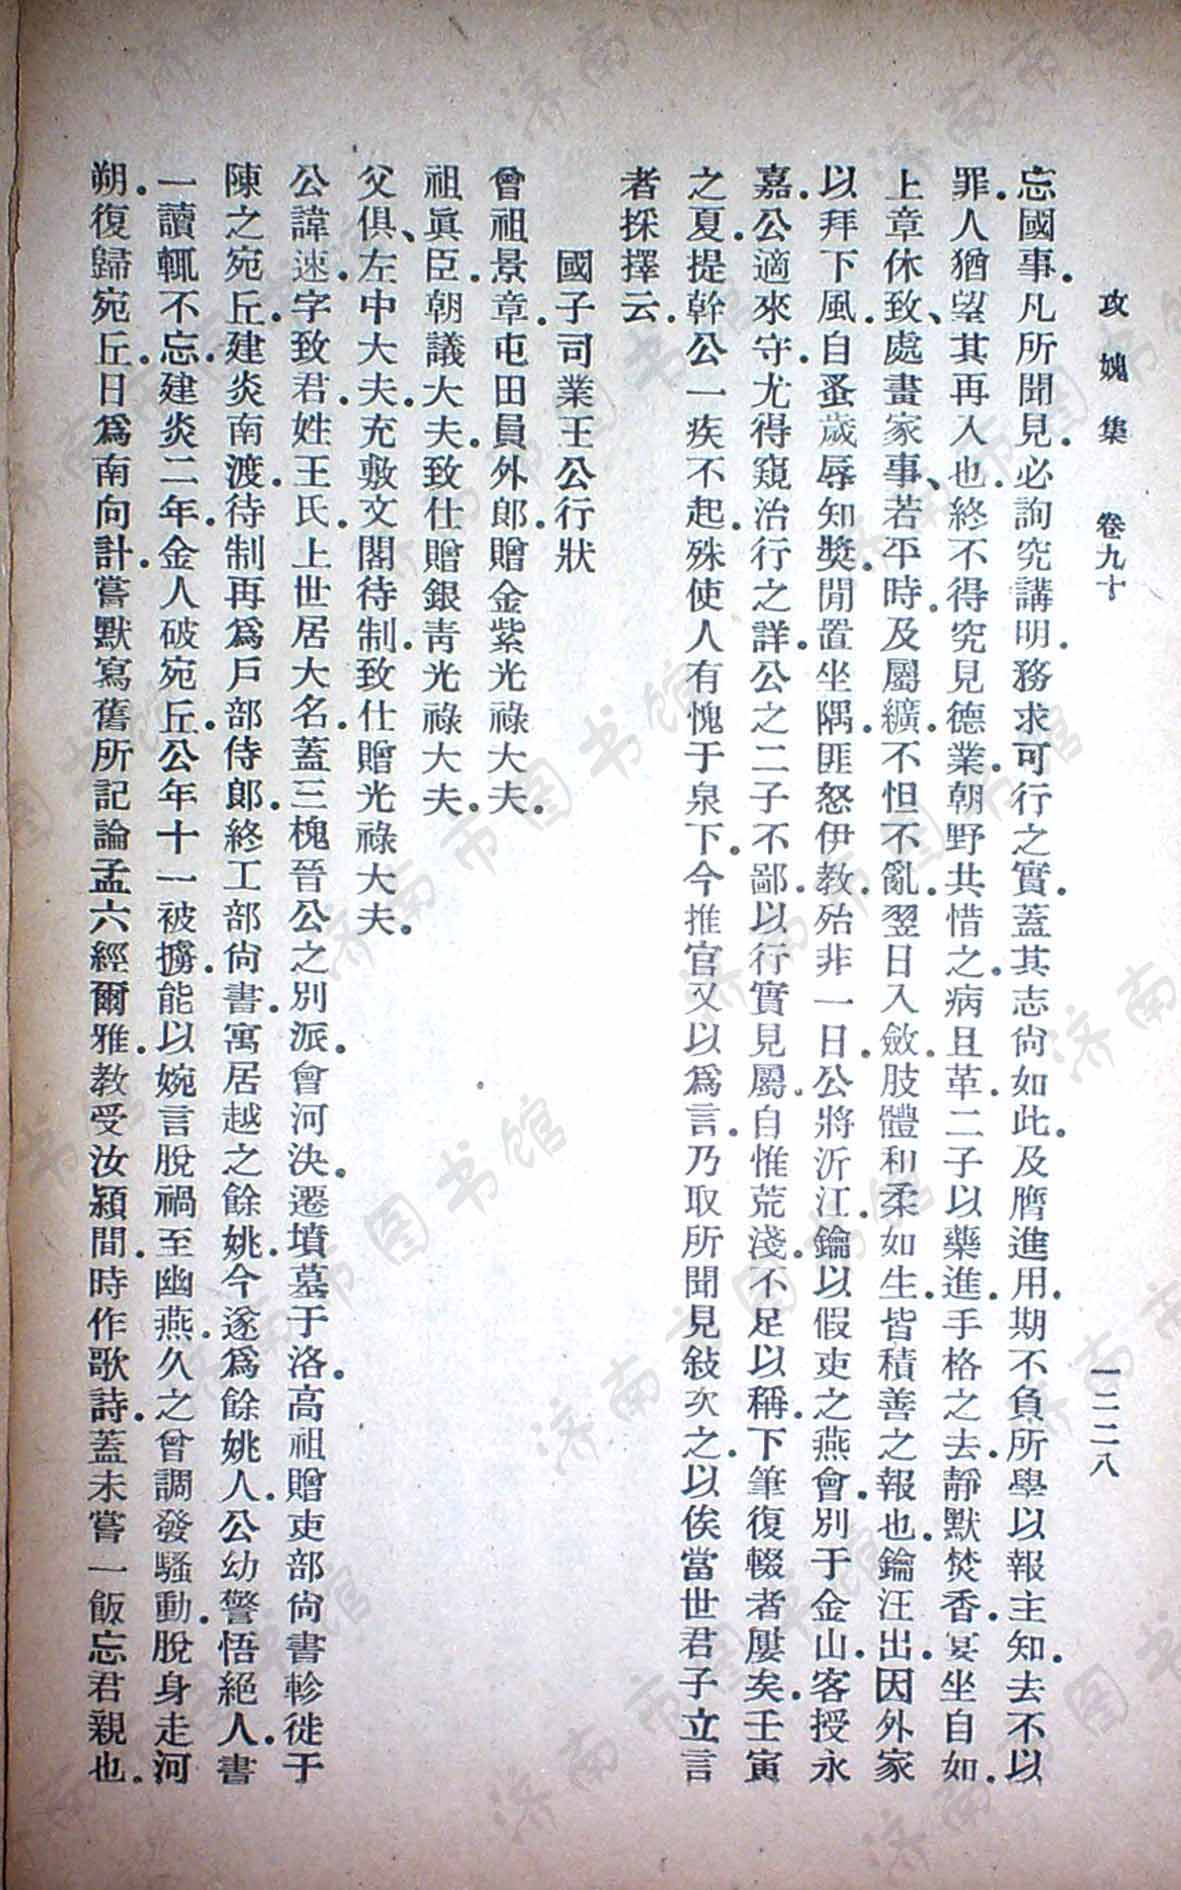 攻媿集　卷九十　一二二八
忘國事。凡所聞見。必詢究講明。務求可行之實。蓋其志尙如此。及膺進用。期不負所學以報主知。去不以
罪。人猶望其再入也。終不得究見德業。朝野共惜之。病且革。二子以藥進。手格之去。靜默焚香。宴坐自如。
上章休致、處畫家事、若平時。及屬纊。不怛不亂。翌日入斂。肢體和柔如生。皆積善之報也。鑰汪出。因外家
以拜下風。自蚤歲辱知奬。閒置坐隅。匪怒伊敎。殆非一日。公將泝江。鑰以假吏之燕會。別于金山。客授永
嘉。公適來守。尤得窺治行之詳。公之二子不鄙。以行實見屬。自惟荒淺。不足以稱。下筆復輟者屢矣。壬寅
之夏。提幹公一疾不起。殊使人有愧于泉下。今推官又以爲言。乃取所聞見敍次之。以俟當世君子立言
者採擇云。
國子司業王公行狀
曾祖景章。屯田員外郞。贈金紫光祿大夫。
祖眞臣。朝議大夫。致仕贈銀靑光祿大夫。
父俱、左中大夫。充敷文閣待制。致仕贈光祿大夫。
公諱速。字致君。姓王氏。上世居大名。蓋三槐晉公之別派。會河決。遷墳墓于洛。高祖贈吏部尙書軫徙于
陳之宛丘。建炎南渡。待制再爲戶部侍郞。終工部尙書。寓居越之餘姚。今遂爲餘姚人。公幼警悟絕人。書
一讀輒不忘。建炎二年。金人破宛丘。公年十一被擄。能以婉言脫禍。至幽燕。久之。會調發騷動。脫身走河
朔。復歸宛丘。日爲南向計。嘗默寫舊所記論孟六經爾雅。敎受汝潁間。時作歌詩。蓋未嘗一飯忘君親也。